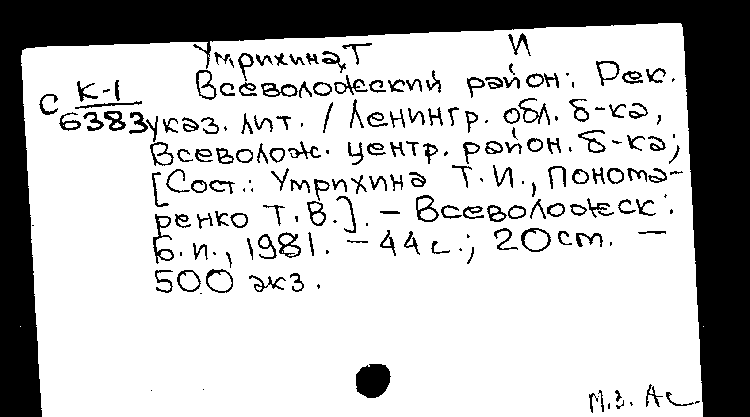 Умрихина, Т И
С К-1 Всеволожский район: Рек.
6383 указ. лит. / Ленингр. обл. б-ка,
Всеволож. центр. район. б-ка;
[Сост.: Умрихина Т.И., Понома-
ренко Т.В.]. – Всеволожск:
Б.и., 1981. – 44 с.; 20 см. –
500 экз.
М.З. Ас